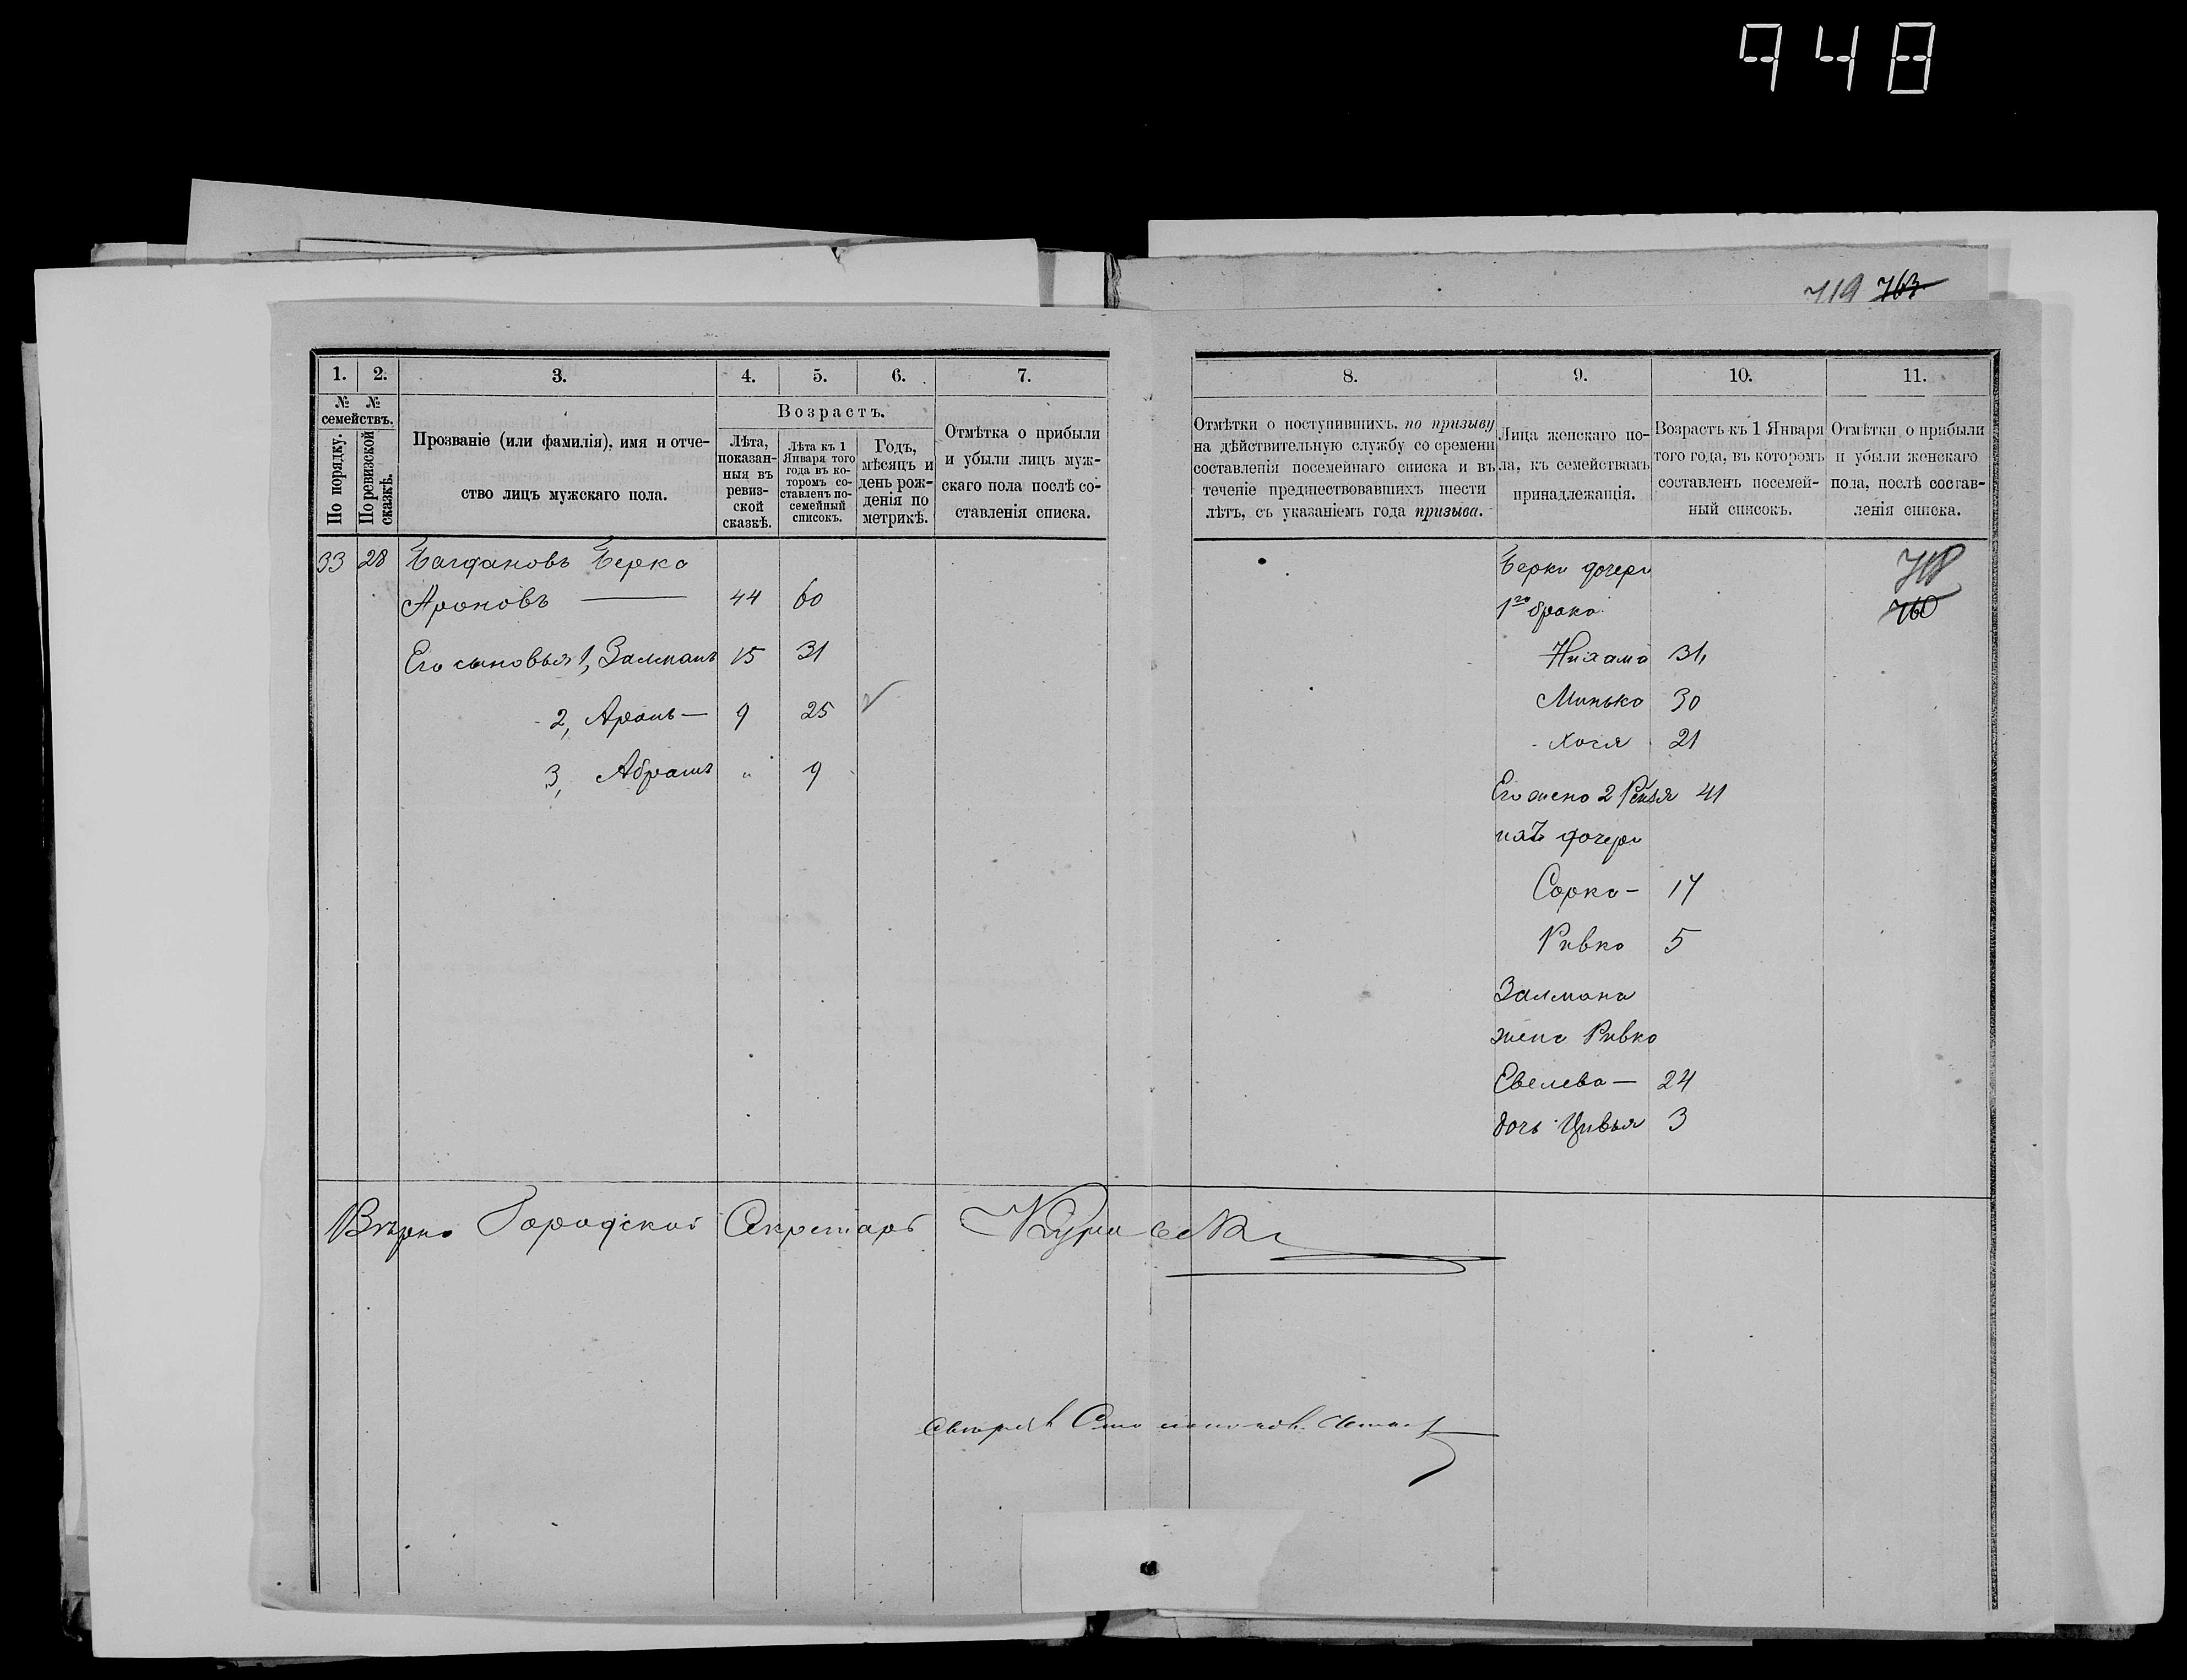 948
719 763
1. 2. 3. 4. 5. 6. 7. 8. 9. 10. 11.
№ № семействъ.
По порядку.
По ревизской сказкѣ.
Прозваніе (или фамилія), имя и отче-
ство лицъ мужскаго пола.
Возрастъ.
Лѣта,
показан-
ныя въ
ревиз-
ской
сказкѣ.
Лѣта къ 1
Января того
года въ ко-
торомъ со-
ставленъ по-
семейный
списокъ.
Годъ,
мѣсяцъ и
день рож-
денія по
метрикѣ.
Отмѣтка о прибыли
и убыли лицъ муж-
скаго пола послѣ со-
ставленія списка.
Отмѣтки о поступившихъ, по призыву
на дѣйствительную службу со времени
составленія посемейнаго списка и въ
теченіе предшествовавшихъ шести
лѣтъ, съ указаніемъ года призыва.
Лица женскаго по-
ла, къ семействамъ
принадлежащія.
Возрастъ къ 1 Января
того года, въ которомъ
составленъ посемей-
ный списокъ.
Отмѣтки о прибыли
и убыли женскаго
пола, послѣ состав-
ленія списка.
33 28 Багдановъ Берка
Ароновъ — 44 60
Его сыновья 1, Залманъ 15 31
2, Аронъ — 9 25
3, Абрамъ " 9
Берки дочери
1го брака
Нихама 31,
Минька 30
Хася 21
Его жена 2 41
ихъ дочери
Сорка — 17
Ривка 5
Залмана
жена Ривка
Евелева — 24
дочь Цивья 3
760
Вѣрно Городской Секретарь